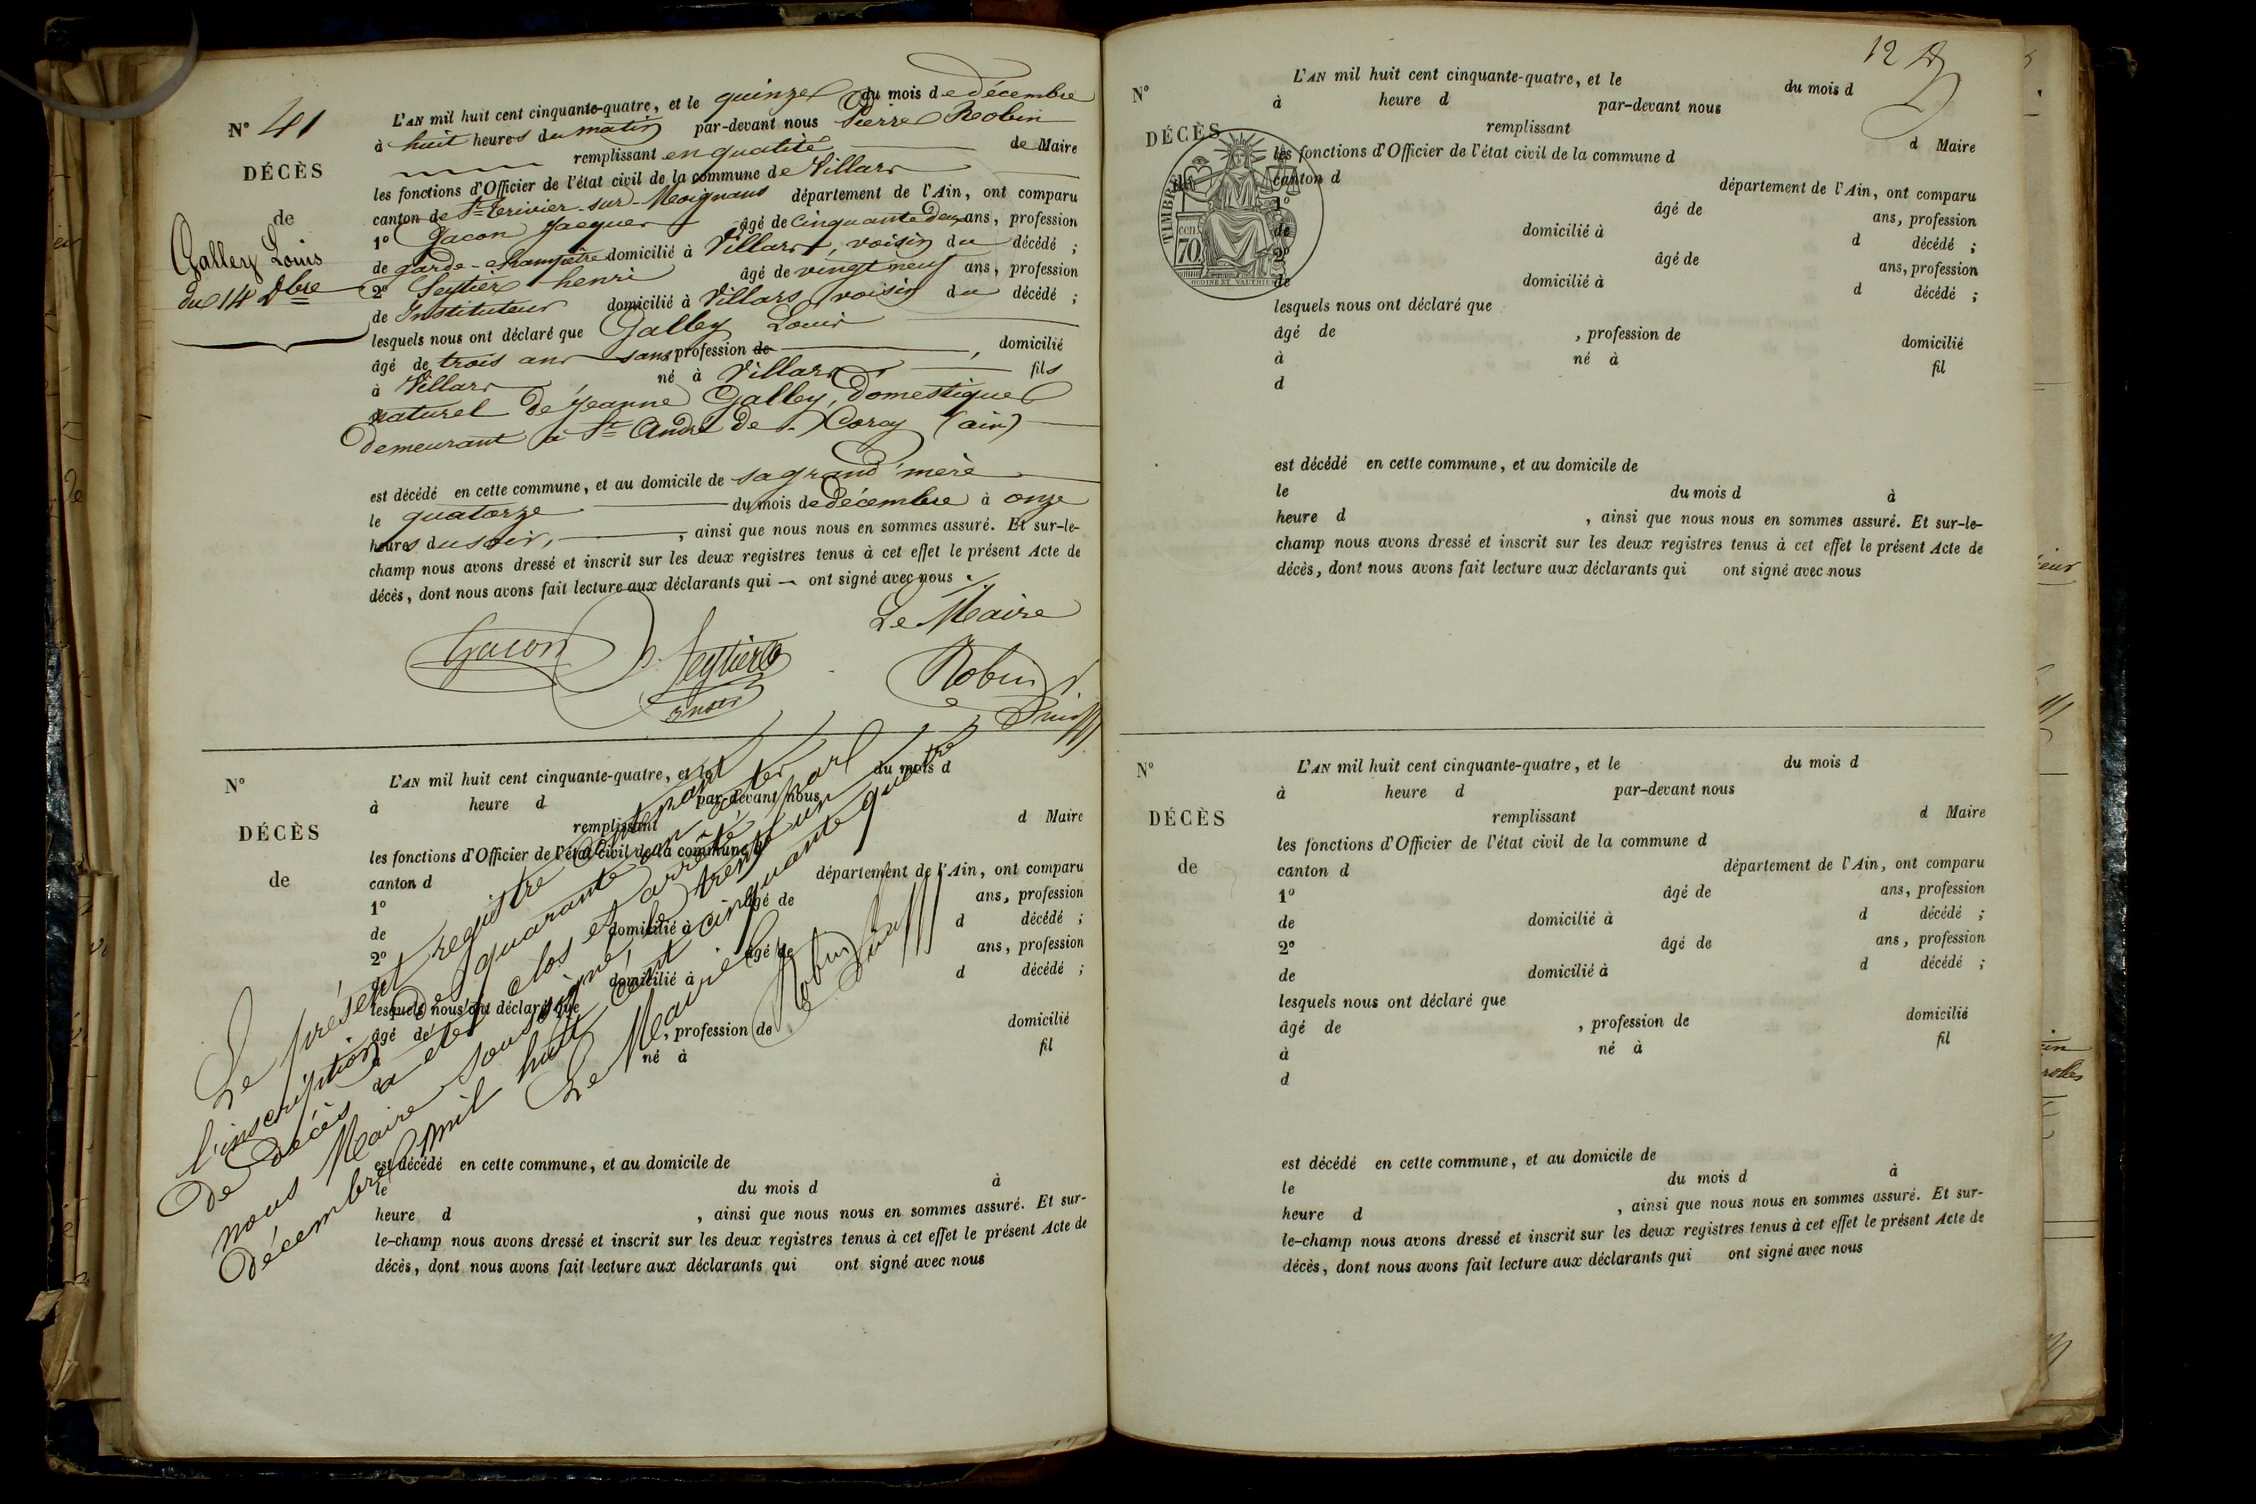 N° 41
DÉCÈS
de
Galley Louis
du 14 Xbre
L'AN mil huit cent cinquante-quatre, et le quinze du mois de décembre
à huit heures du matin par-devant nous Pierre Robin
remplissant en qualité de Maire
les fonctions d'Officier de l'état civil de la commune de Villars
canton de St Trivier-sur-Moignans département de l'Ain, ont comparu
1° Gacon Jacques âgé de cinquante deux ans, profession
de garde-champêtre domicilié à Villars, voisin du décédé ;
2° Seytier henri âgé de vingt neuf ans, profession
de Instituteur domicilié à Villars, voisin du décédé ;
lesquels nous ont déclaré que Galley Louis
âgé de trois ans sans profession de , domicilié
à Villars né à Villars fils
naturel de Jeanne Galley, domestique
demeurant à St André de Corcy (ain)
est décédé en cette commune, et au domicile de sa grand'mère
le quatorze du mois de décembre à onze
heures du soir, , ainsi que nous nous en sommes assuré. Et sur-le-
champ nous avons dressé et inscrit sur les deux registres tenus à cet effet le présent Acte de
décès, dont nous avons fait lecture aux déclarants qui ont signé avec nous.
Le Maire
Gacon h. Seytier Robin
N°
DÉCÈS
de
L'AN mil huit cent cinquante-quatre, et le du mois d
à heure d par-devant nous
remplissant d Maire
les fonctions d'Officier de l'état civil de la commune d
canton d département de l'Ain, ont comparu
1° âgé de ans, profession
de domicilié à d décédé ;
2° âgé de ans, profession
de domicilié à d décédé ;
lesquels nous ont déclaré que
âgé de , profession de domicilié
à né à fil
d
est décédé en cette commune, et au domicile de
le du mois d à
heure d , ainsi que nous nous en sommes assuré. Et sur-
le-champ nous avons dressé et inscrit sur les deux registres tenus à cet effet le présent Acte de
décès, dont nous avons fait lecture aux déclarants qui ont signé avec nous
Le présent registre contenant
l'inscription de quarante un actes
de décès a été clos et arrêté par
nous Maire soussigné, le trente un
décembre mil huit cent cinquante quatre
Le Maire
Robin
12
N°
DÉCÈS
TIMBRE
70 cen
OUDINE ET VAUTHIER
L'AN mil huit cent cinquante-quatre, et le du mois d
à heure d par-devant nous
remplissant d Maire
les fonctions d'Officier de l'état civil de la commune d
canton d département de l'Ain, ont comparu
1° âgé de ans, profession
de domicilié à d décédé ;
2° âgé de ans, profession
de domicilié à d décédé ;
lesquels nous ont déclaré que
âgé de , profession de domicilié
à né à fil
d
est décédé en cette commune, et au domicile de
le du mois d à
heure d , ainsi que nous nous en sommes assuré. Et sur-le-
champ nous avons dressé et inscrit sur les deux registres tenus à cet effet le présent Acte de
décès, dont nous avons fait lecture aux déclarants qui ont signé avec nous
N°
DÉCÈS
de
L'AN mil huit cent cinquante-quatre, et le du mois d
à heure d par-devant nous
remplissant d Maire
les fonctions d'Officier de l'état civil de la commune d
canton d département de l'Ain, ont comparu
1° âgé de ans, profession
de domicilié à d décédé ;
2° âgé de ans, profession
de domicilié à d décédé ;
lesquels nous ont déclaré que
âgé de , profession de domicilié
à né à fil
d
est décédé en cette commune, et au domicile de
le du mois d à
heure d , ainsi que nous nous en sommes assuré. Et sur-
le-champ nous avons dressé et inscrit sur les deux registres tenus à cet effet le présent Acte de
décès, dont nous avons fait lecture aux déclarants qui ont signé avec nous